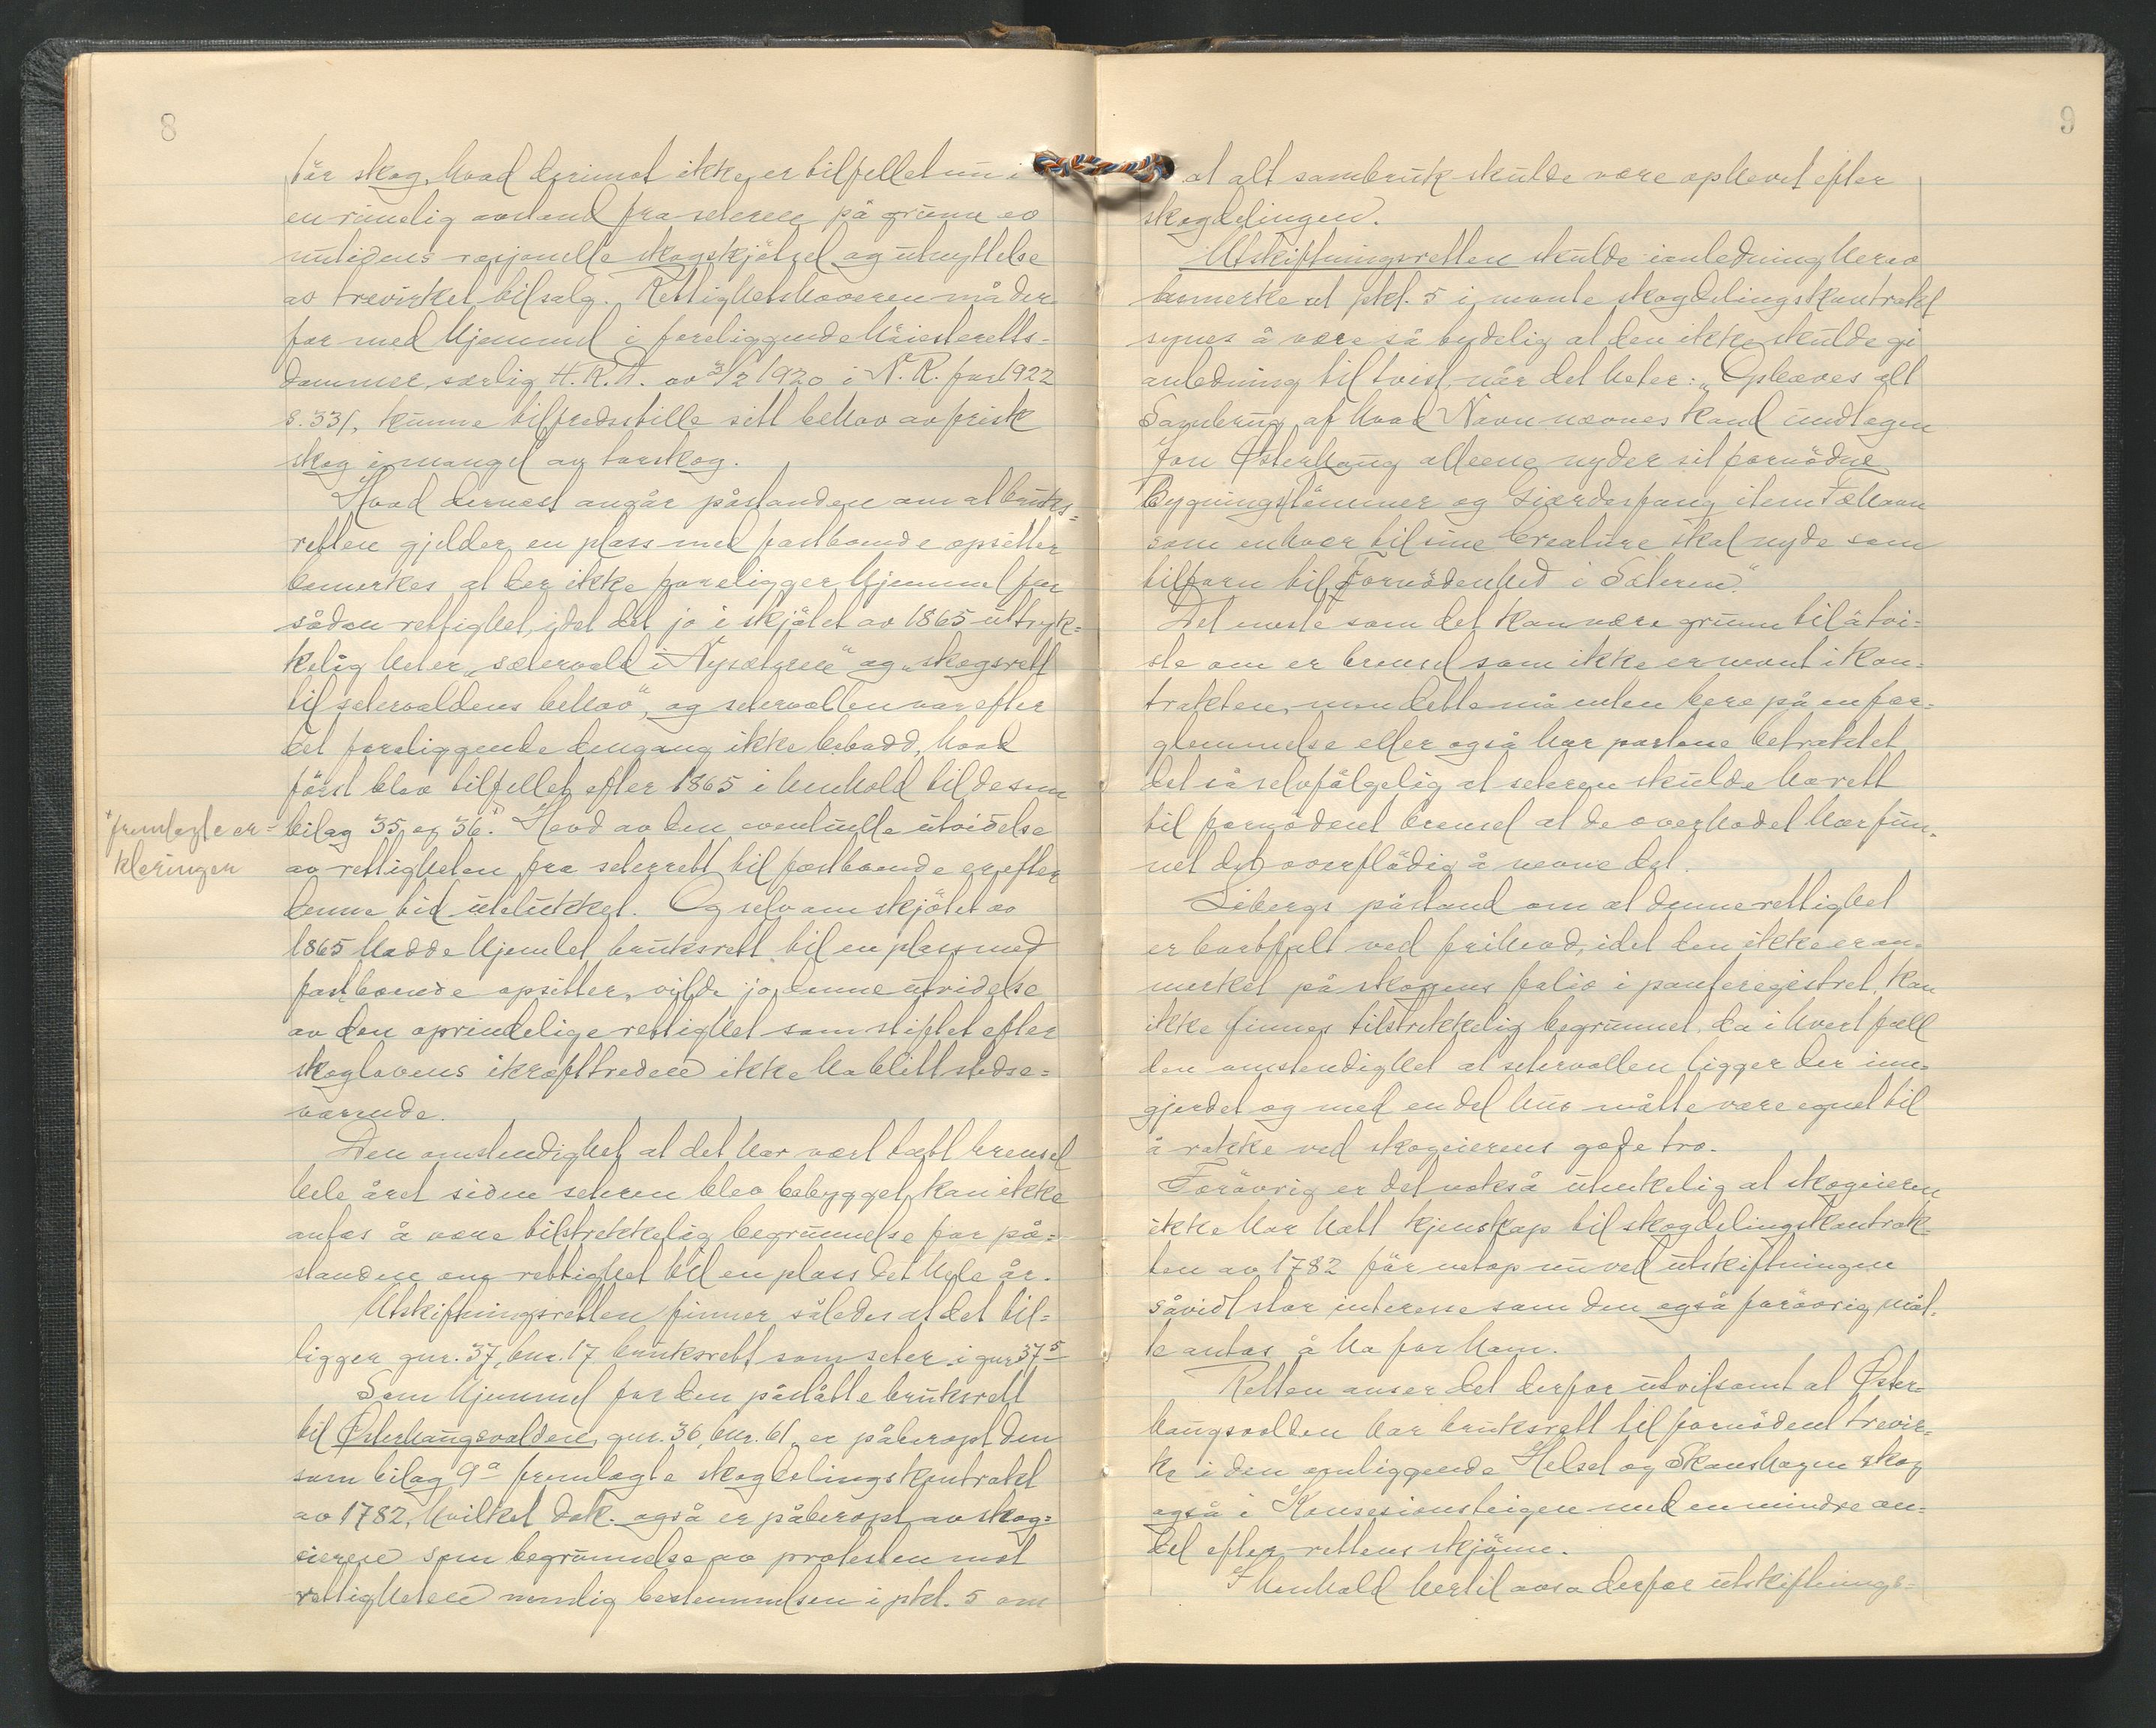 8
tör skog, hvad derimot ikke er tilfellet nu i
en rimelig avstand fra seteren på grunn av
nutidens rasjonelle skogskjötsel og utnyttelse
av trevirket til salg. Rettighetshaveren må der-
for med hjemmel i foreliggende Höiesteretts-
dommer, særlig H.R.D. av 3/2 1920 i N.R. for 1922
s. 331, kunne tilfredsstille sitt behov av frisk
skog i mangel av törskog.
Hvad dernest angår påstanden om at bruks-
retten gjelder en plass med fastboende opsitter
bemerkes at der ikke foreligger hjemmel for
sådan rettighet, idet det jo i skjötet av 1865 uttryk-
kelig heter „sætervold i Nysætrene" og „skogsrett
til setervoldens behov", og setervollen var efter
det foreliggende dengang ikke bebodd, hvad
först blev tilfellet efter 1865 i henhold til de som
bilag 35 og 36 + Hevd av den eventuelle utvidelse
+ fremlagte er-
kleringer
av rettigheten fra seterrett til fastboende er efter
denne tid utelukket. Og selv om skjötet av
1865 hadde hjemlet bruksrett til en plass med
fastboende opsitter, vilde jo denne utvidelse
av den oprindelige rettighet som stiftet efter
skoglovens ikrafttreden ikke ha blitt stedse-
varende.
Den omstendighet at det har vært tatt brensel
hele året siden seteren blev bebygget, kan ikke
antas å være tilstrekkelig begrunnelse for på-
standen om rettighet til en plass det hele år.
Utskiftningsretten finner således at det til-
ligger gnr. 37, bnr. 17 bruksrett som seter i gnr 37 5
Som hjemmel for den påståtte bruksrett
til Østerhaugsvolden, gnr. 36, bnr. 61, er påberopt den
som bilag 9a fremlagte skogdelingskontrakt
av 1782, hvilket dok. også er påberopt av skog-
eieren som begrunnelse av protesten mot
rettigheten nemlig bestemmelsen i pkt. 5 om
9
at alt sambruk skulde være ophevet efter
skogdelingen.
Utskiftningsretten skulde i anledning herav
bemerke at pkt. 5 i nevnte skogdelingskontrakt
synes å være så tydelig at den ikke skulde gi
anledning til tvist, når det heter: „Ophæves alt
Sambrug af hvad Navn nævnes kand undtagen
Jon Østerhaug alleene nyder sit fornödne
bygningstömmer og Gierdesfang item Fæhavn
som enhver til sine Creature skal nyde som
tilforn til Fornödenhed i Sæteren."
Det meste som det kan være grunn til å tvi-
ste om er brensel som ikke er nevnt i kon-
trakten, men dette må enten bero på en for-
glemmelse eller også har partene betraktet
det så selvfölgelig at seteren skulde ha rett
til fornödent brensel at de overhodet har fun-
net det overflödig å nevne det.
Libergs påstand om at denne rettighet
er bortfalt ved frihevd, idet den ikke er an-
merket på skogens folio i panteregistret, kan
ikke finnes tilstrekkelig begrunnet, da i hvert fall
den omstendighet at setervollen ligger der inn-
gjerdet og med en del hus måtte være egnet til
å rokke ved skogeierens gode tro.
Forövrig er det också utenkelig at skogeieren
ikke har hatt kjenskap til skogdelingskontrak-
ten av 1782 för netop nu ved utskiftningen
såvidt stor interesse som den også forövrig måt-
te antas å ha for ham.
Retten anser det derfor utvilsomt at Øster-
haugsvolden har bruksrett til fornödent trevir-
ke i den omliggende Helset og Skanshagen skog
også i Konsesionsteigen med en mindre an-
del efter rettens skjönn.
I henhold hertil avsa derfor utskiftnings-